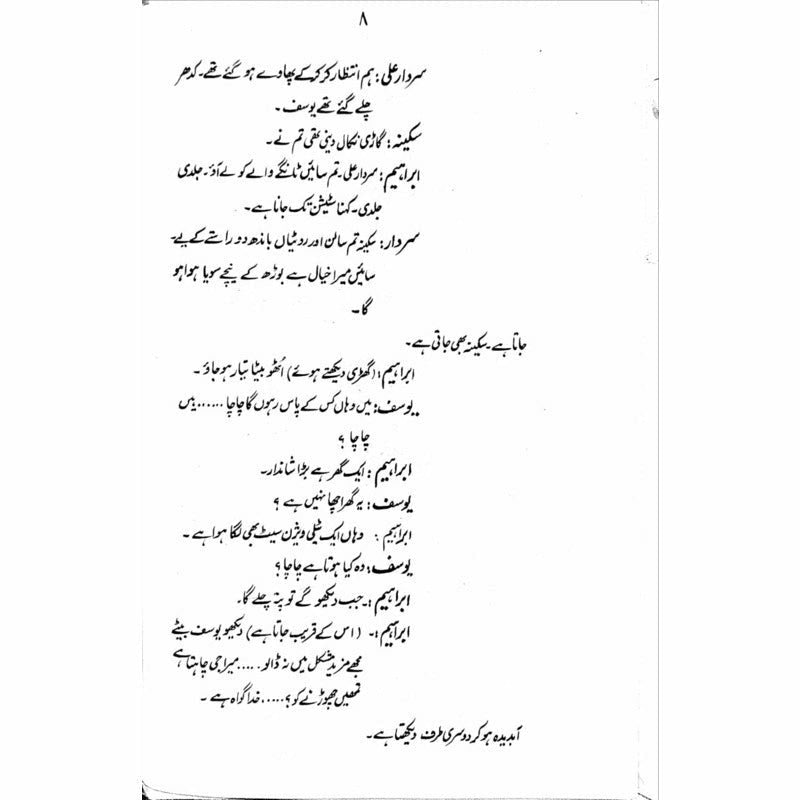 ۸
سردار علی: ہم انتظار کر کر کے پھاوے ہو گئے تھے۔ کدھر
چلے گئے تھے یوسف۔
سکینہ: گاڑی نکال دینی تھی تم نے۔
ابراہیم: سردار علی۔ تم سائیں ٹانگے والے کو لے آؤ۔ جلدی
جلدی۔ کہنا سٹیشن تک جانا ہے۔
سردار: سکینہ تم سالن اور روٹیاں باندھ دو راستے کے لیے۔
سائیں میرا خیال ہے بوڑھ کے نیچے سویا ہوا ہو
گا۔
جاتا ہے۔ سکینہ بھی جاتی ہے۔
ابراہیم: (گھڑی دیکھتے ہوئے) اُٹھو بیٹا تیار ہو جاؤ۔
یوسف: میں وہاں کس کے پاس رہوں گا چاچا ...... میں
چاچا ؟
ابراہیم: ایک گھر ہے بڑا شاندار۔
یوسف: یہ گھر اچھا نہیں ہے ؟
ابراہیم: وہاں ایک ٹیلی ویژن سیٹ بھی لگا ہوا ہے۔
یوسف: وہ کیا ہوتا ہے چاچا ؟
ابراہیم:۔ جب دیکھو گے تو پتہ چلے گا۔
ابراہیم:۔ (اس کے قریب جاتا ہے) دیکھو یوسف بیٹے
مجھے مزید مشکل میں نہ ڈالو ..... میرا جی چاہتا ہے
تمھیں چھوڑنے کو؟ ..... خدا گواہ ہے۔
آبدیدہ ہو کر دوسری طرف دیکھتا ہے۔